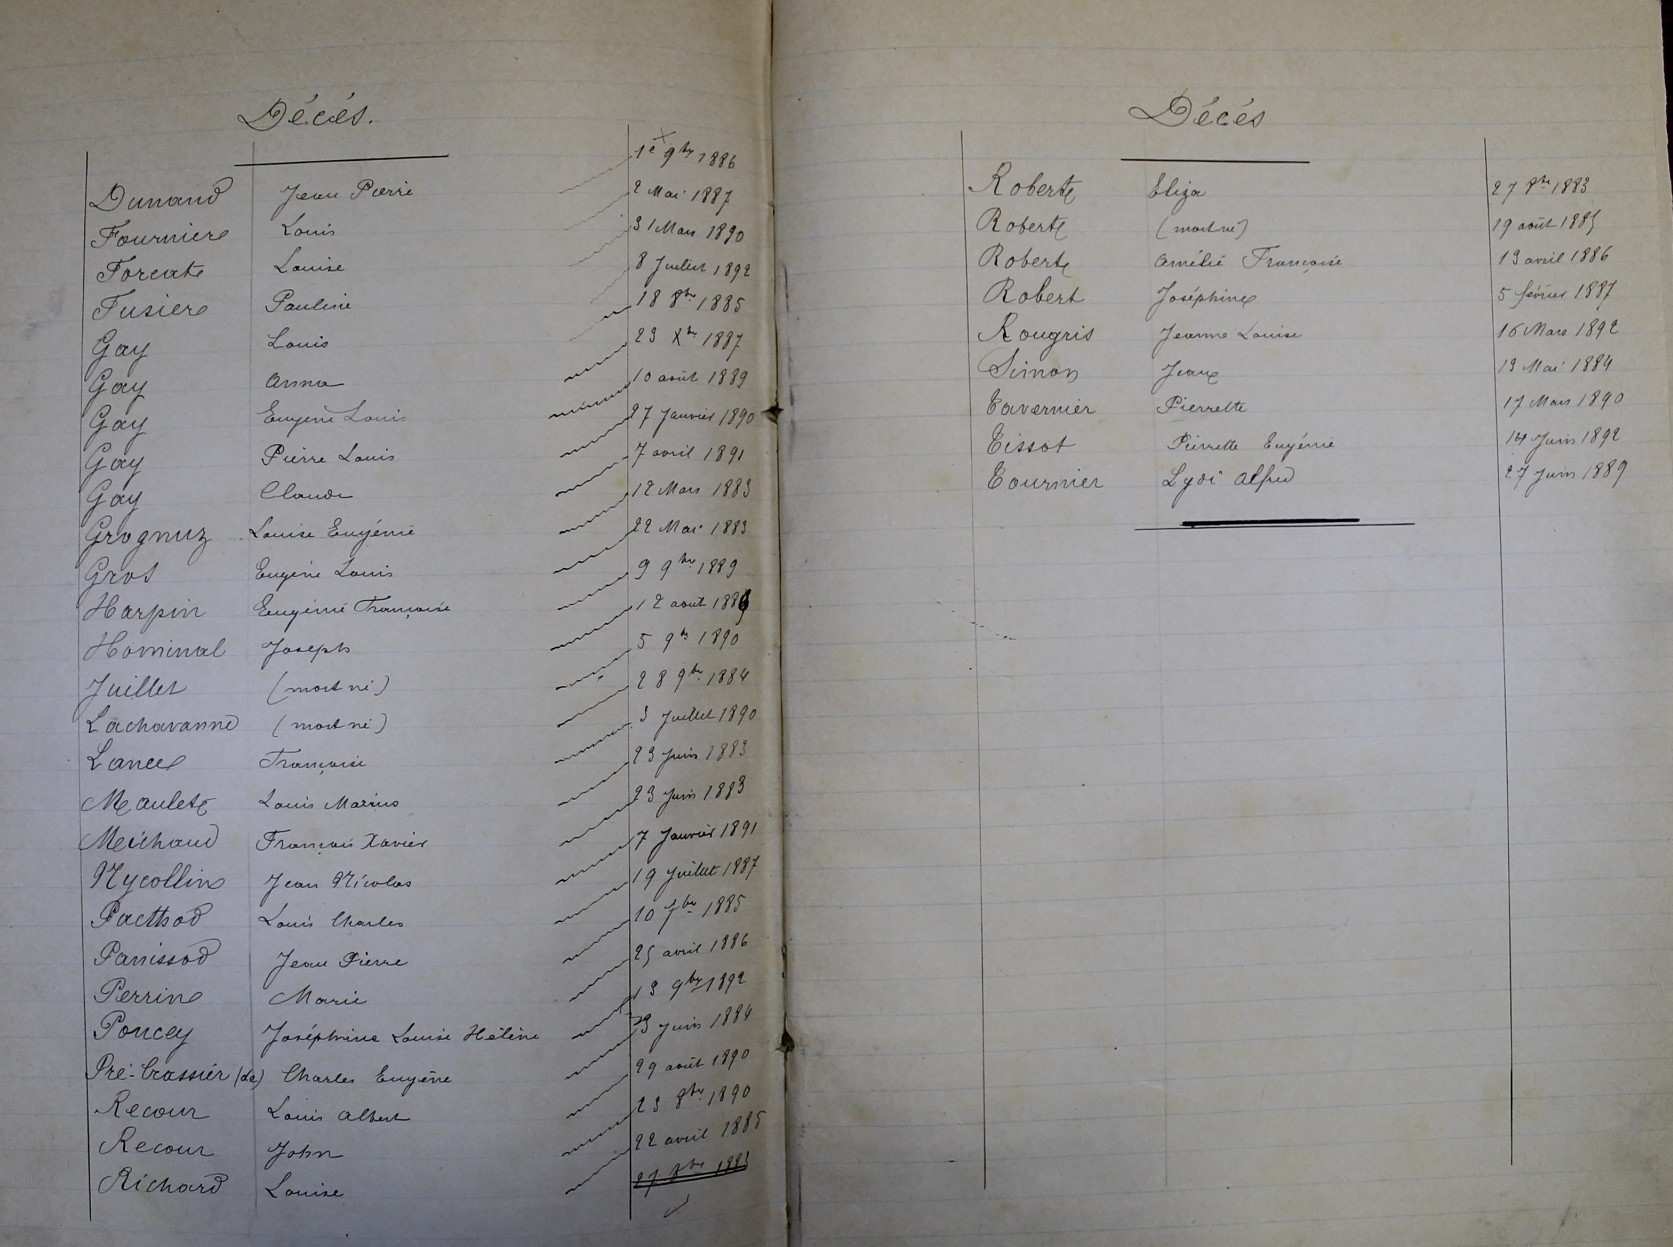 Décés.
Dunand Jean Pierre 1e 9bre 1886
Fournier Louis 2 Mai 1887
Forcat Louise 31 Mars 1890
Fusier Pauline 8 Juillet 1892
Gay Louis 18 8bre 1885
Gay Anna 23 Xbre 1887
Gay Eugène Louis 10 août 1889
Gay Pierre Louis 27 Janvier 1890
Gay Claude 7 avril 1891
Grognuz Louise Eugénie 12 Mars 1883
Gros Eugène Louis 22 Mai 1883
Harpin Eugénie Françoise 9 9bre 1889
Hominal Joseph 12 aout
Juillet (mort né) 5 9bre 1890
Lachavanne (mort né) 28 9bre 1884
Lance Françoise 3 Juillet 1890
Maulet Louis Marius 23 Juin 1883
Meichaud François Xavier 23 Juin 1883
Nycollin Jean Nicolas 7 Janvier 1891
Pacthod Louis Charles 19 Juillet 1887
Panissod Jean Pierre 10 7bre 1885
Perrin Marie 25 avril 1886
Poncey Joséphine Louise Hélène 13 9bre 1892
Pré-Crassier (de) Charles Eugène 23 Juin 1884
Recour Louis Albert 29 août 1890
Recour John 23 8bre 1890
Richard Louise 22 avril 1885
27 8bre 1883
Décés
Robert Eliza 27 8bre 1883
Robert (mort né) 19 août 1885
Robert Amélie Françoise 13 avril 1886
Robert Joséphine 5 février 1887
Rougris Jeanne Louise 16 Mars 1892
Simon Jean 13 Mai 1884
Tavernier Pierrette 17 Mars 1890
Tissot Pierrette Eugénie 14 Juin 1892
Tournier Lydi Alfred 27 Juin 1889